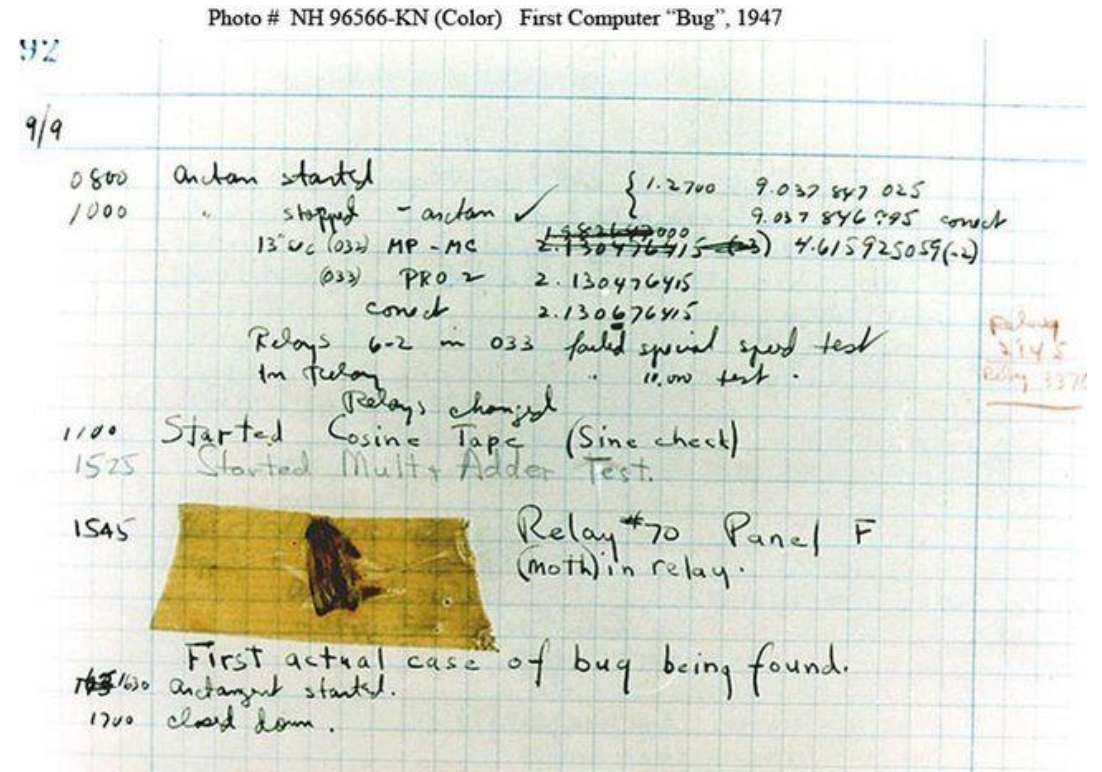 Photo # NH 96566-KN (Color) First Computer “Bug”, 1947
92
9/9
0800 antan started { 1.2700 9.037 847 025
1000 " stopped - antan ✓ 9.037 846 995 conect
13"uc (032) MP - MC 2.130476415 (-3) 4.615925059(-2)
(033) PRO 2 2.130476415
conect 2.130676415
Relays 6-2 in 033 failed special speed test
In Relay " 10,000 test.
Relays changed
Relay
2145
Relay 3370
1100 Started Cosine Tape (Sine check)
1525 Started Mult + Adder Test.
1545 Relay #70 Panel F
(moth) in relay.
First actual case of bug being found.
1630 antangent started.
1700 closed down.